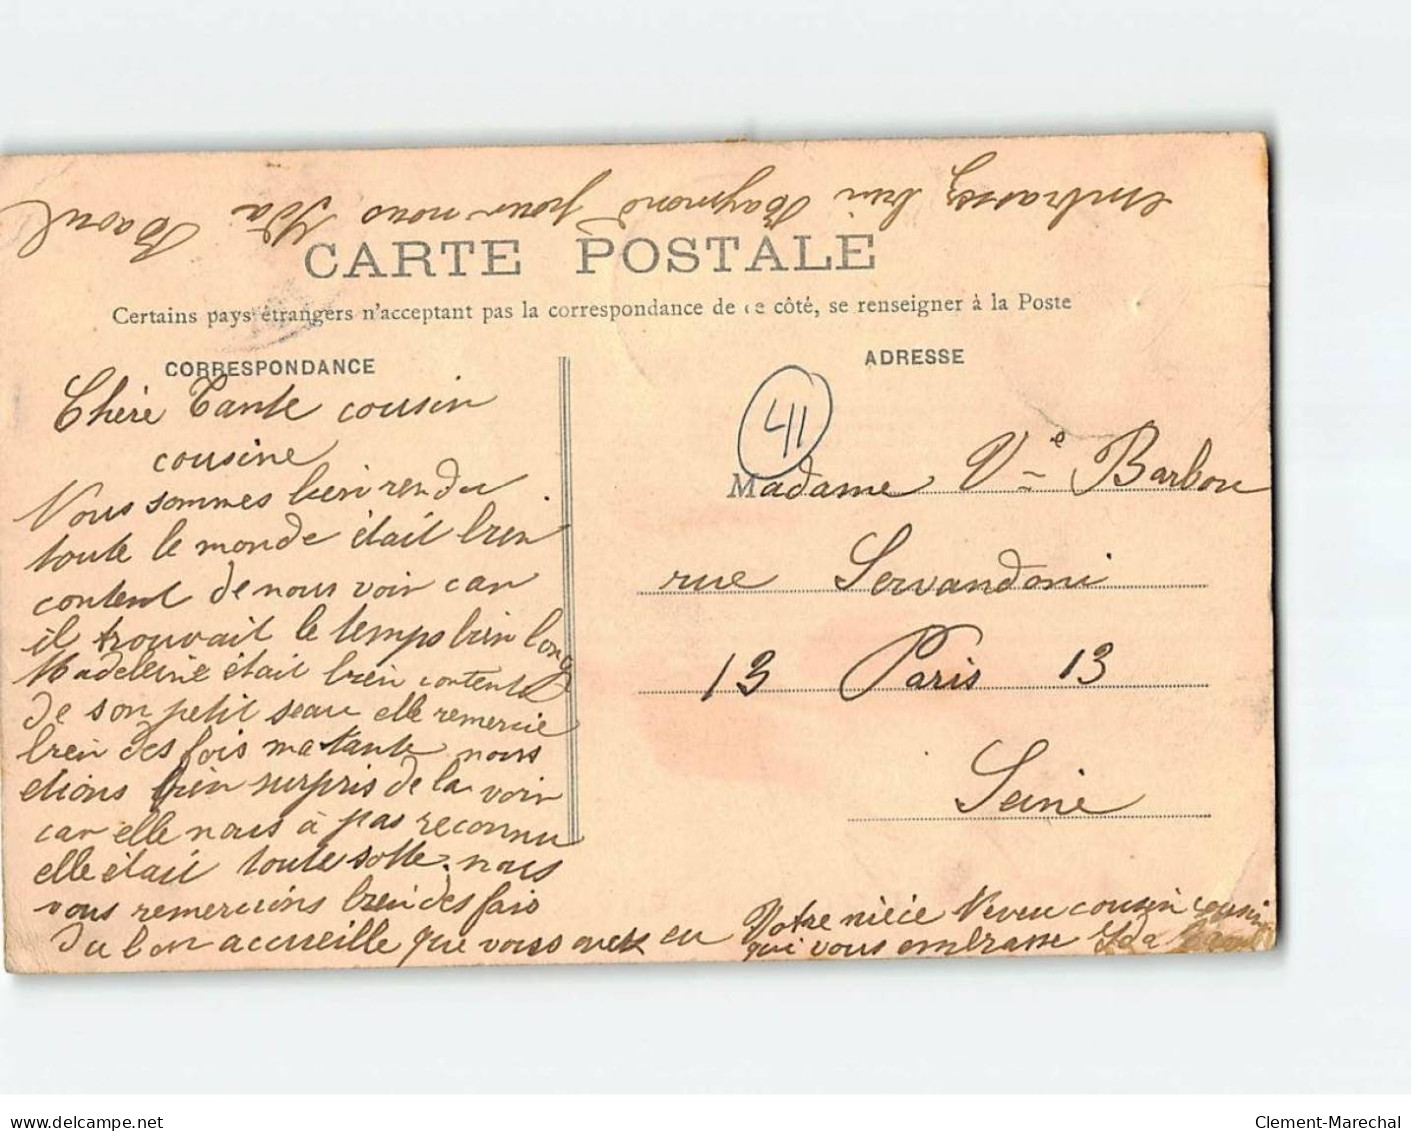 embrassez bien Raymond pour nous Ida Raoul
CARTE POSTALE
Certains pays étrangers n'acceptant pas la correspondance de ce côté, se renseigner à la Poste
CORRESPONDANCE
Chère Tante cousin
cousine
Nous sommes bien rendu
toute le monde était bien
content de nous voir car
il trouvait le temps bien long
Madeleine était bien contente
de son petit seau elle remercie
bien des fois ma tante nous
etions bien surpris de la voir
car elle nous à pas reconnu
elle était toute sotte. nous
vous remercions bien des fois
du bon accueille que vous avez eu
Votre nièce Neveu cousin cousine
qui vous embrasse Ida Raoul
ADRESSE
411
Madame Vve Barbou
rue Servandoni
13 Paris 13
Seine
delcampe.net
Clement-Marechal